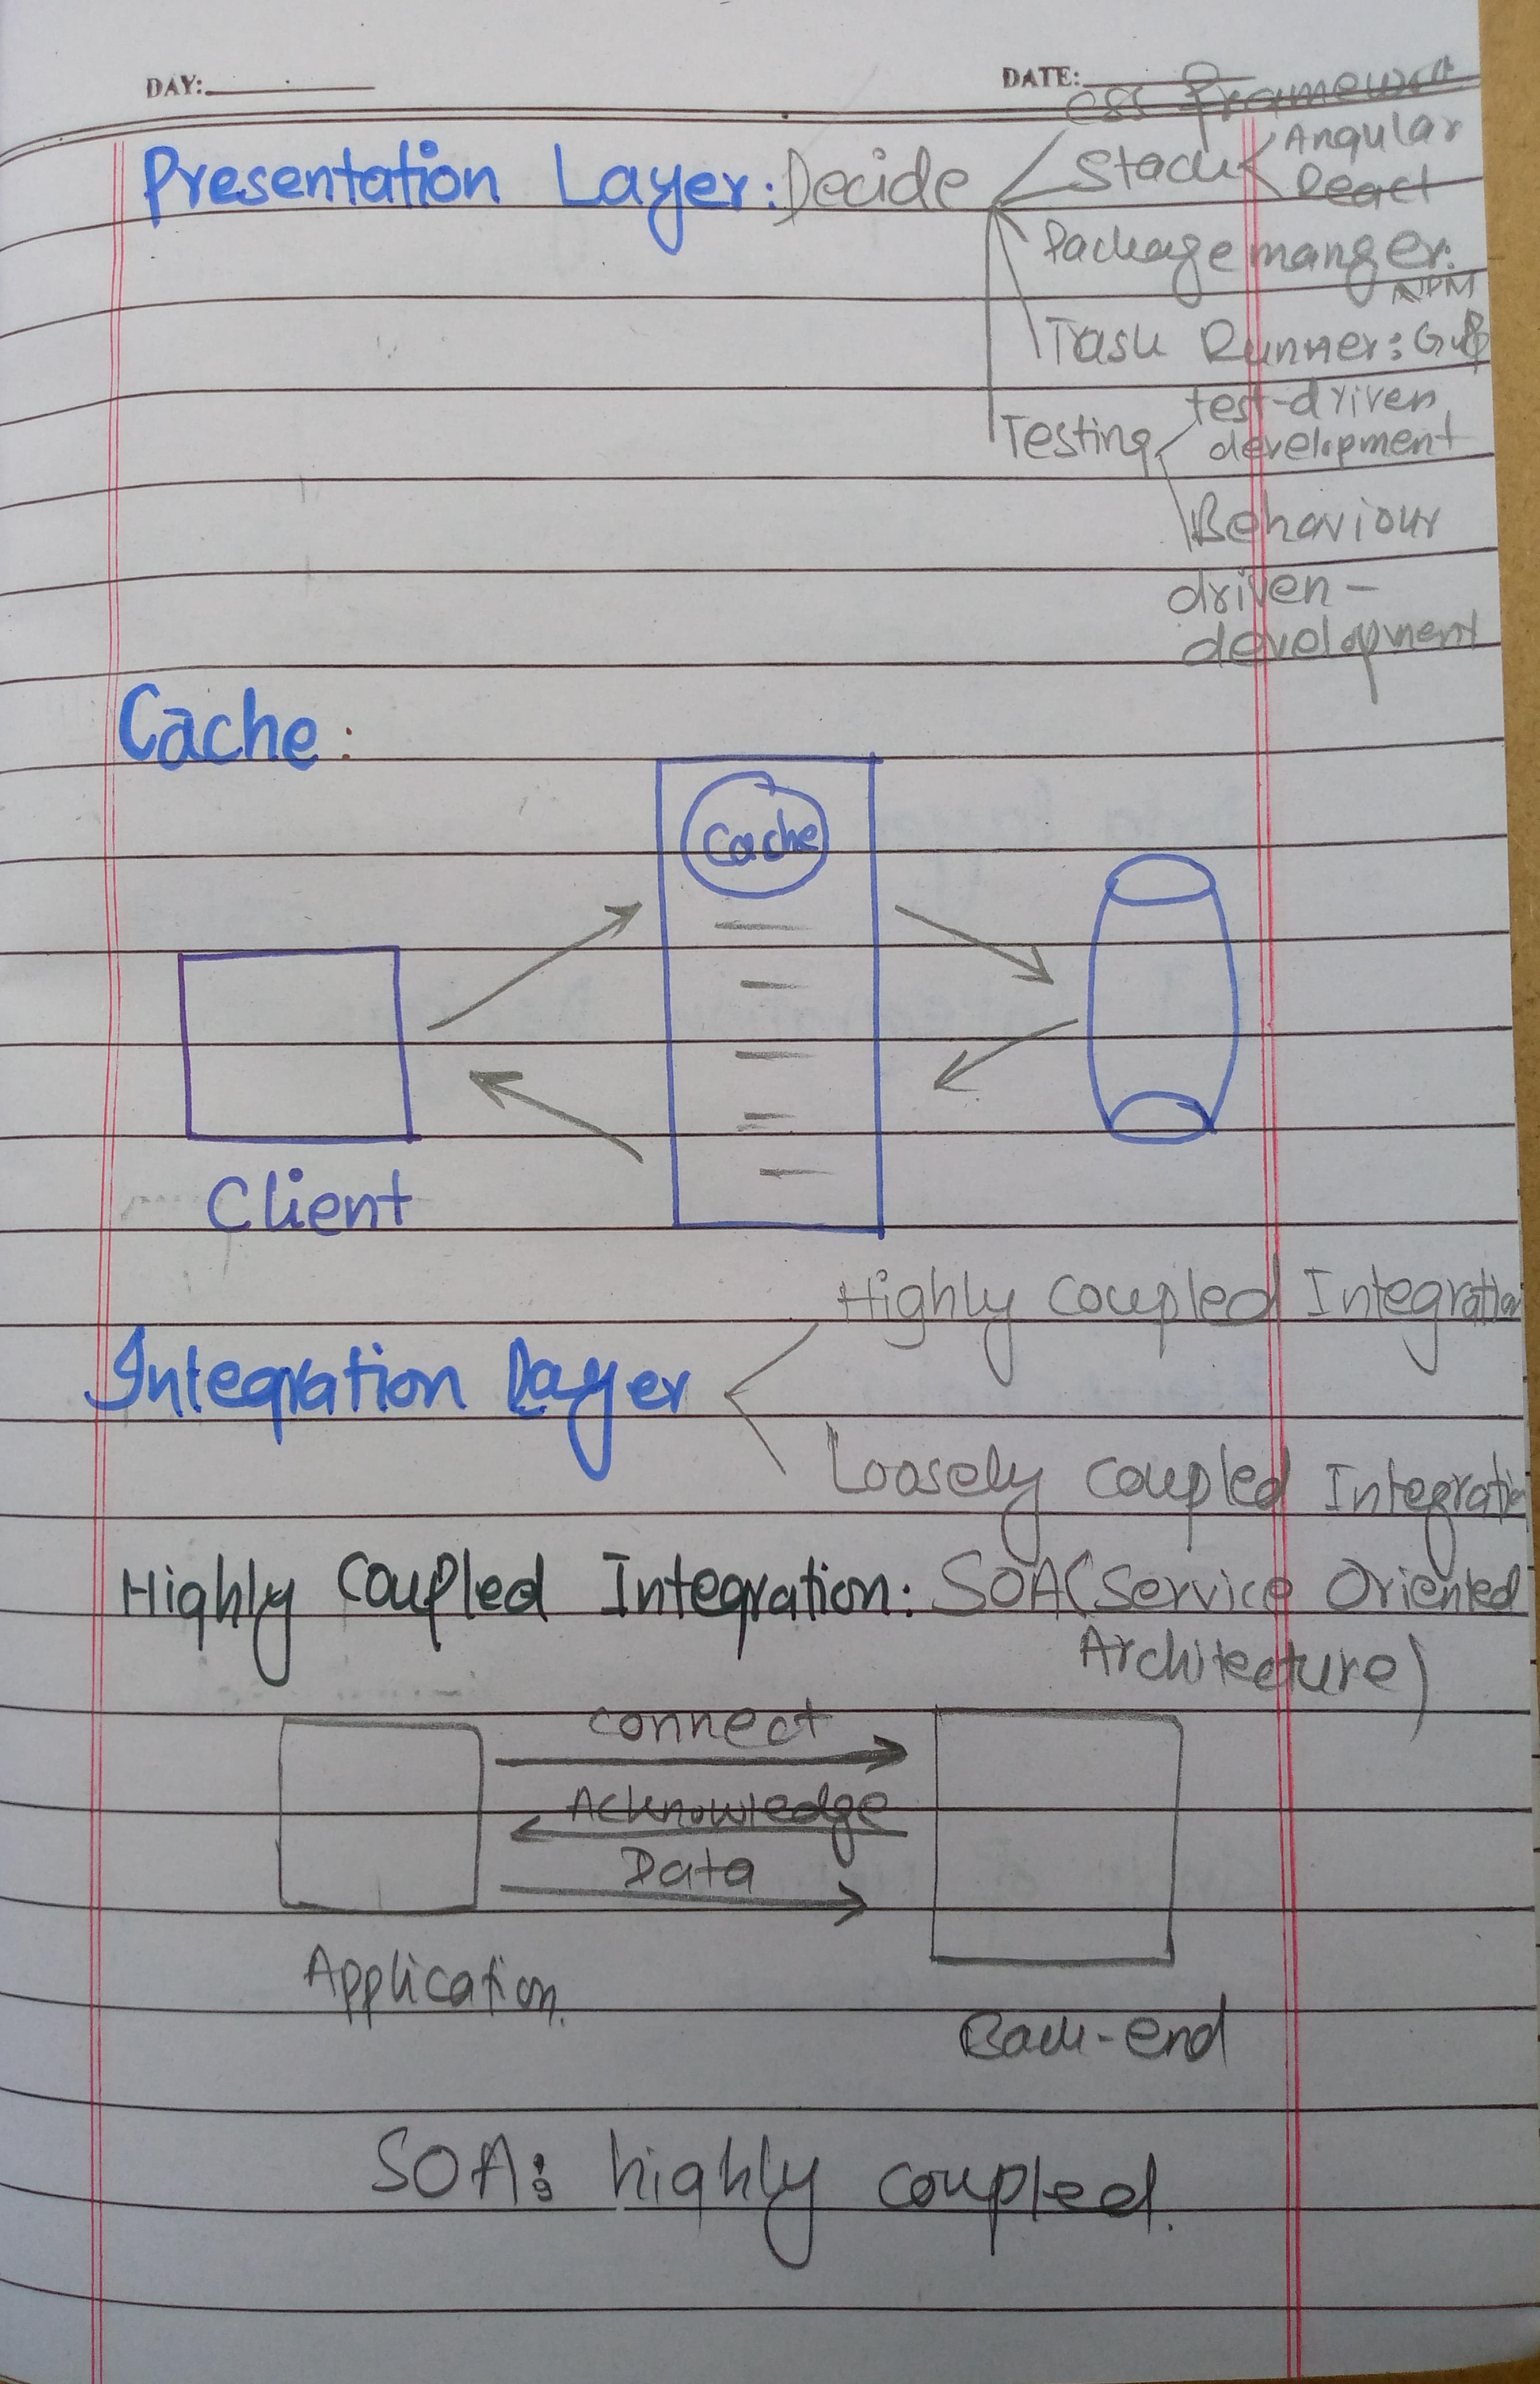 DAY:
DATE:
CSS Framework
Presentation Layer: Decide
Stack
Angular
React
Package manger:
NPM
Task Runner: Gulp
Testing
test-driven
development
Behaviour
driven-
development
Cache:
Cache
Client
Highly Coupled Integration
Integration Layer
Loosely Coupled Integration
Highly Coupled Integration: SOA (Service Oriented
Architecture)
connect
Acknowledge
Data
Application.
Back-end
SOA: highly coupled.